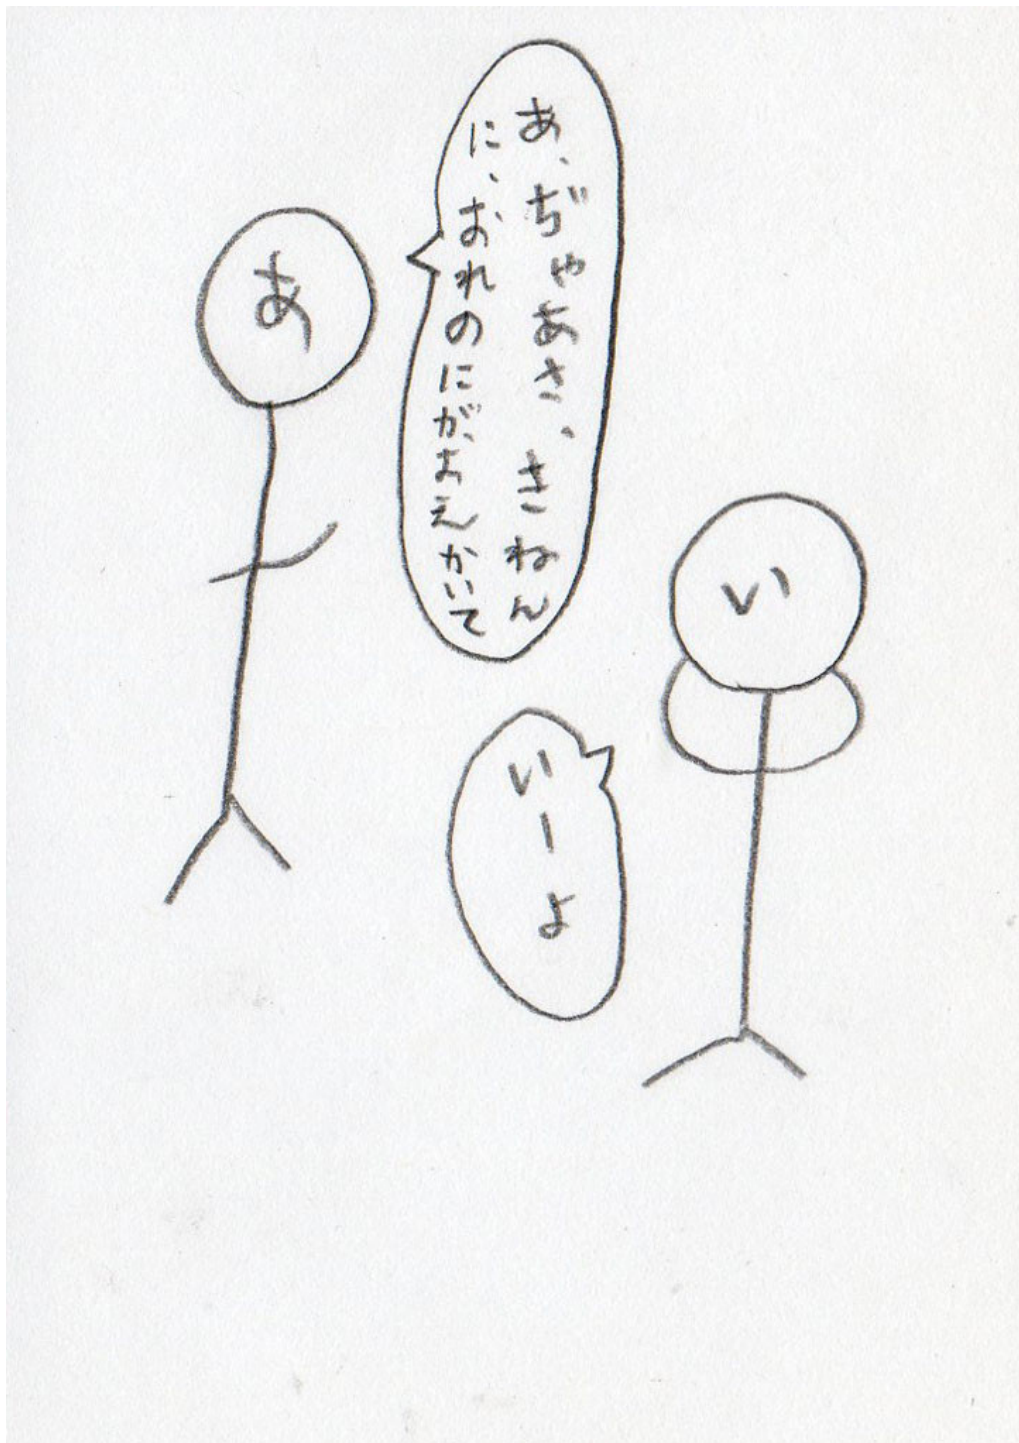 あ、ぢゃあさ、きねん
に、おれのにがおえかいて
あ
い
いーよ